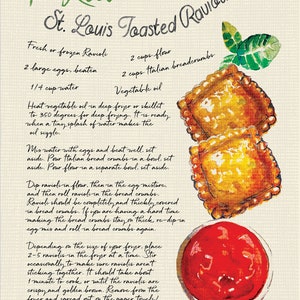 St. Louis Toasted Ravioli
Fresh or frozen Ravioli
2 cups flour
2 large eggs, beaten
2 cups Italian breadcrumbs
1/4 cup water
Vegetable oil
Heat vegetable oil in deep fryer or skillet
to 350 degrees for deep frying. It is ready
when a tiny splash of water makes the
oil sizzle.
Mix water with eggs and beat well, set
aside. Pour Italian bread crumbs in a bowl, set
aside. Pour flour in a separate bowl, set aside.
Dip ravioli in flour, then in the egg mixture,
and then roll ravioli in the bread crumbs.
Ravioli should be completely and thickly covered
in bread crumbs. If you are having a hard time
making the bread crumbs stay on thick, re-dip in
egg mix and roll in bread crumbs again.
Depending on the size of your fryer, place
2-5 ravioli in the fryer at a time. Stir
occasionally to make sure ravioli aren't
sticking together. It should take about
1 minute to cook, or until the ravioli are
crisp and golden brown. Remove from the
fryer and spread out on the paper towels